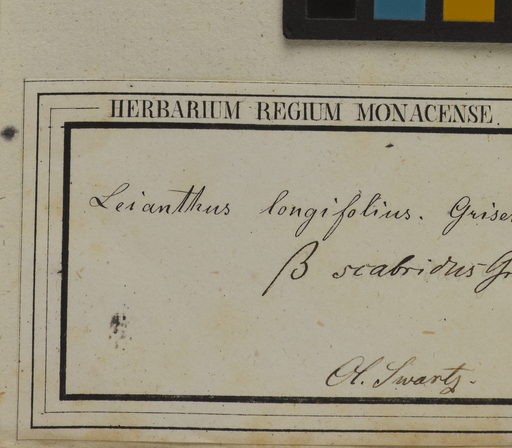 HERBARIUM REGIUM MONACENSE.
Leianthus longifolius. Grise
β scabridus Gr
Ol. Swartz.